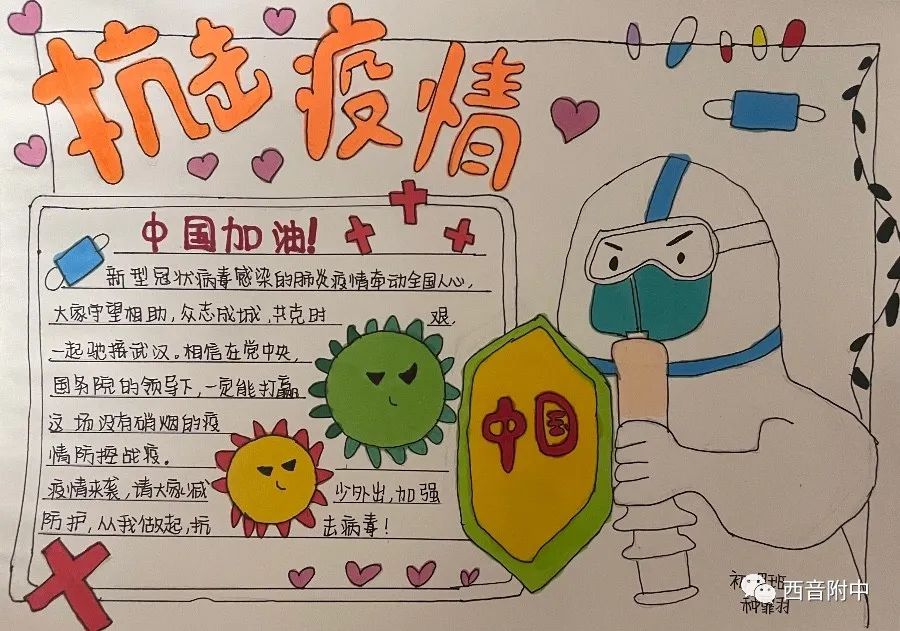 抗击疫情
中国加油!
新型冠状病毒感染的肺炎疫情牵动全国人心,
大家守望相助,众志成城,共克时艰,
一起驰援武汉。相信在党中央,
国务院的领导下,一定能打赢
这场没有硝烟的疫
情防控战疫。
疫情来袭,请大家减少外出,加强
防护,从我做起,抗击病毒!
中国
西音附中